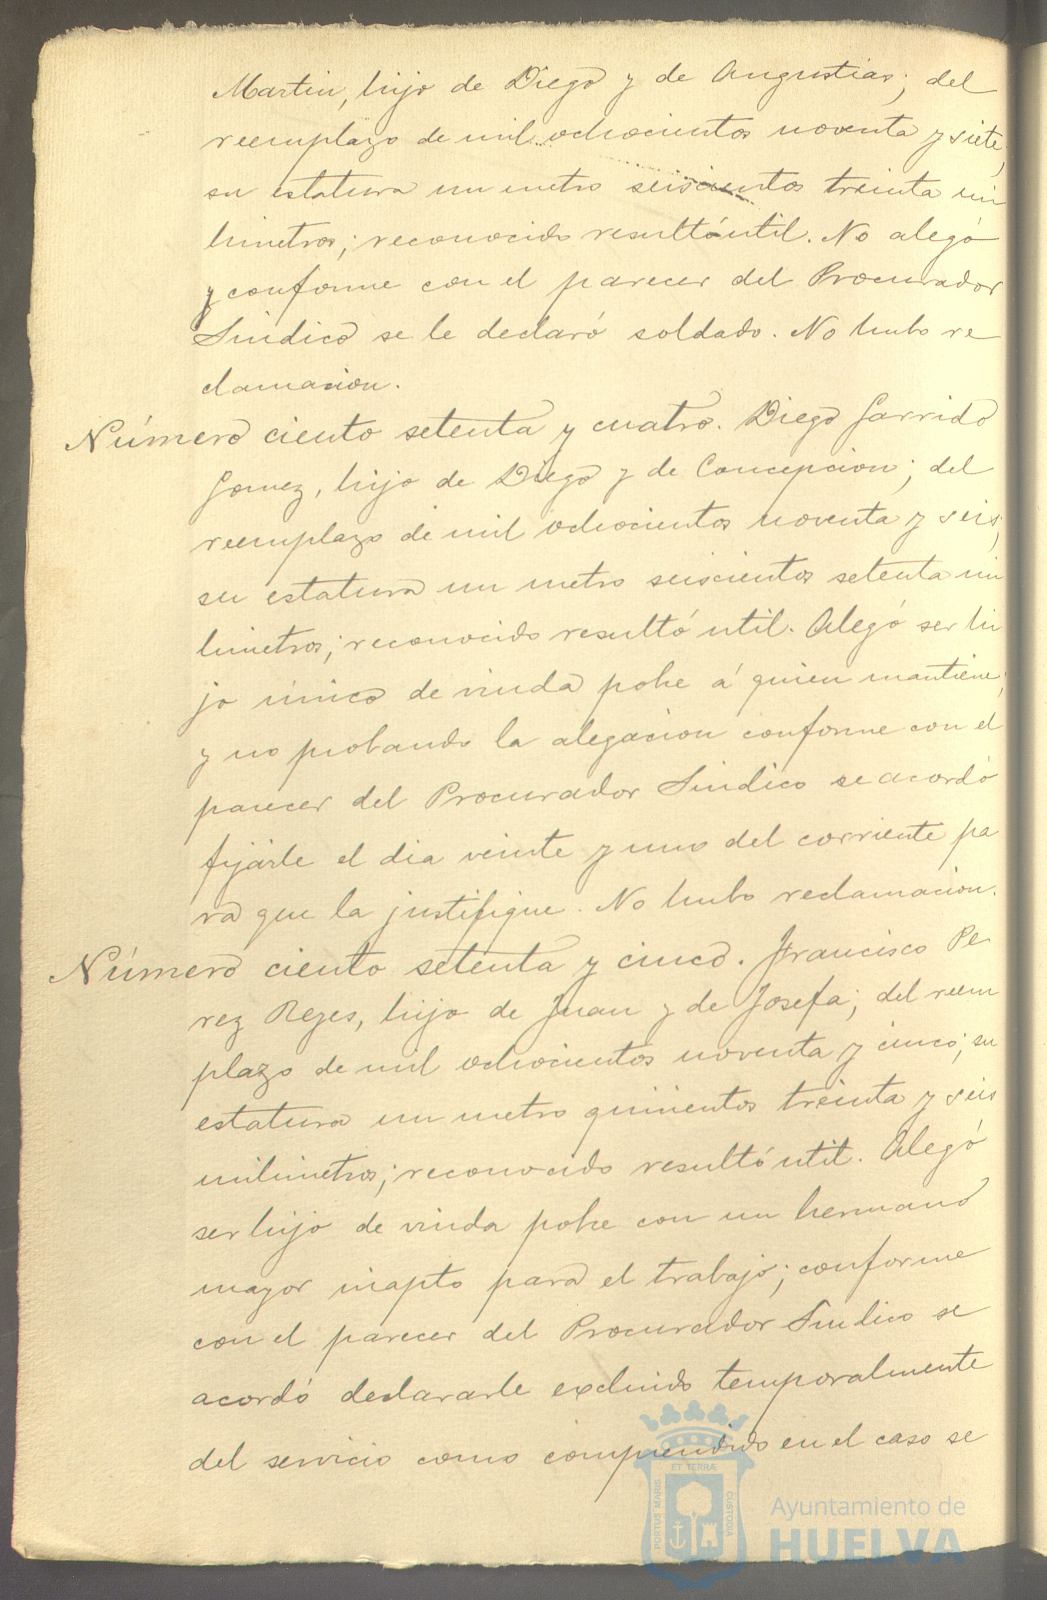 Martin, hijo de Diego y de Angustias; del
reemplazo de mil ochocientos noventa y siete,
su estatura un metro seiscientos treinta mi
limetros; reconocido resultó útil. No alegó
y conforme con el parecer del Procurador
Sindico se le declaró soldado. No hubo re
clamacion.
Número ciento setenta y cuatro. Diego Garrido
Gomez, hijo de Diego y de Concepcion; del
reemplazo de mil ochocientos noventa y seis,
su estatura un metro seiscientos setenta mi
limetros; reconocido resultó util. Alegó ser hi
jo único de viuda pobre á quien mantiene;
y no probando la alegacion conforme con el
parecer del Procurador Sindico se acordó
fijarle el dia veinte y uno del corriente pa
ra que la justifique. No hubo reclamacion.
Número ciento setenta y cinco. Francisco Pe
rez Reyes, hijo de Juan y de Josefa; del reem
plazo de mil ochocientos noventa y cinco; su
estatura un metro quinientos treinta y seis
milimetros; reconocido resultó util. Alegó
ser hijo de viuda pobre con un hermano
mayor inapto para el trabajo; conforme
con el parecer del Procurador Sindico se
acordó declararle excluido temporalmente
del servicio como comprendido en el caso se
PORTUS MARIS
ET TERRÆ
CUSTODIA
Ayuntamiento de
HUELVA